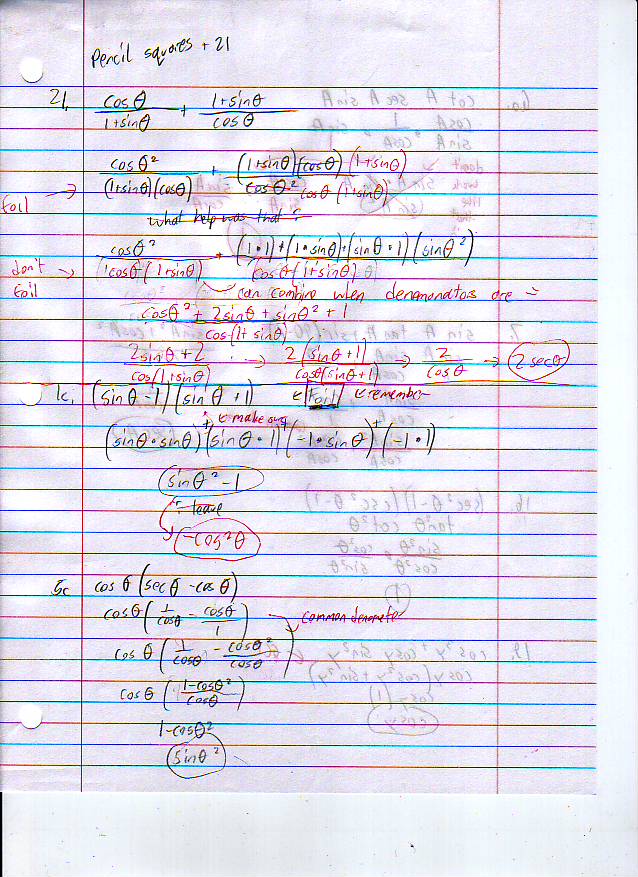 Pencil squares + 21
21. cosθ/1+sinθ + 1+sinθ/cosθ
cosθ²/(1+sinθ)(cosθ) + (1+sinθ)(cosθ)(1+sinθ)/cosθ² cosθ(1+sinθ)
Foil →
what help was that?
cosθ²/1cosθ(1+sinθ) + (1•1)+(1•sinθ)+(sinθ•1)(sinθ²)/cosθ(1+sinθ)
don't foil →
can combine when denomonators are =
cosθ² + 2sinθ + sinθ² + 1/cos(1+sinθ)
2sinθ+2/cos(1+sinθ) → 2(sinθ+1)/cosθ(sinθ+1) → 2/cosθ → 2secθ
1c. (sinθ-1)(sinθ+1) ← Foil ← remember
+ ← make sure
(sinθ•sinθ)+(sinθ•1)+(-1•sinθ)+(-1•1)
sinθ²-1
leave
-cos²θ
5c cosθ(secθ-cosθ)
cosθ(1/cosθ - cosθ/1)
common denometer
cosθ(1/cosθ - cosθ²/cosθ)
cosθ(1-cosθ²/cosθ)
1-cosθ²
sinθ²